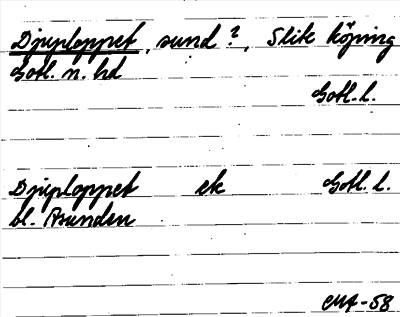 Djuploppet, sund?, Slite köping
Gotl. n. hd
Gotl. l.
Djuploppet ek Gotl. l.
bl. Asunden
CMA-58